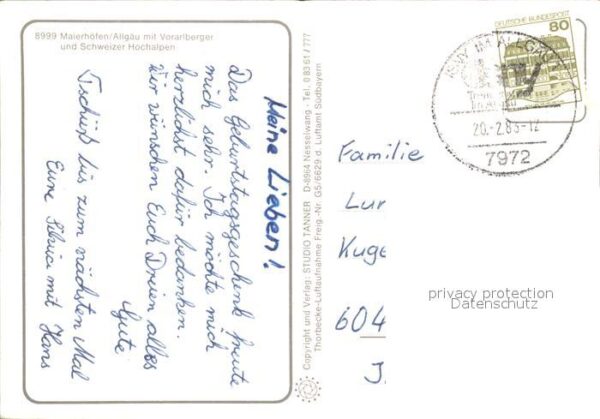 8999 Maierhöfen/Allgäu mit Vorarlberger
und Schweizer Hochalpen
Meine Lieben!
Das Geburtstagsgeschenk freute
mich sehr. Ich möchte mich
herzlichst dafür bedanken.
Wir wünschen Euch Dreien alles
Gute
Tschüß bis zum nächsten Mal
Eure Silvia mit Hans
Copyright und Verlag: STUDIO TANNER D-8964 Nesselwang - Tel. 0 83 61 / 777
Thorbecke-Luftaufnahme Freig.-Nr. G5/6629 d. Luftamt Südbayern
DEUTSCHE BUNDESPOST
80
ISNY IM ALLGÄU
20.-2.83-12
7972
Familie
Lur
Kuge
604
J
privacy protection
Datenschutz